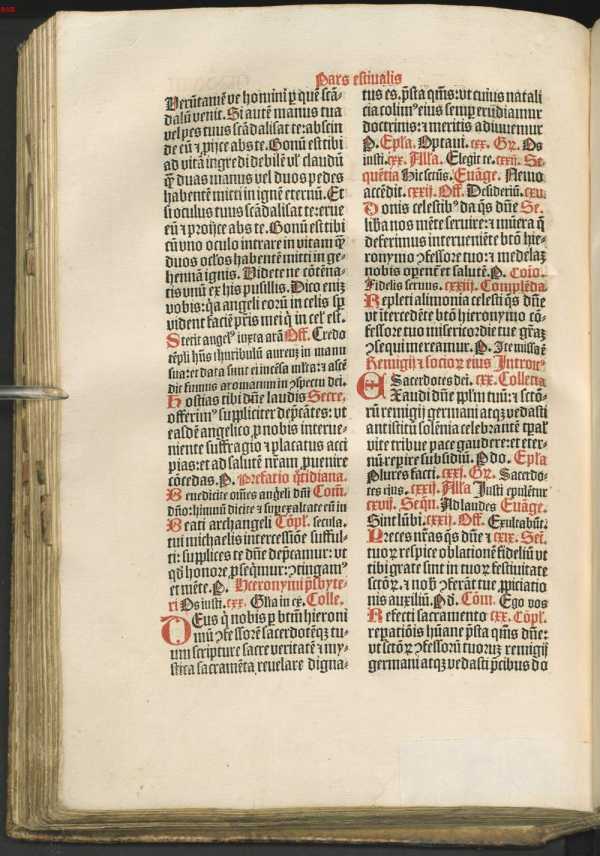 Pars estiualis
Uerūtamē ve homini ꝑ quē scā-
dalū venit. Si autē manus tua
vel pes tuus scādalisat te: abscin
de eū ⁊ ꝓijce abs te. Bonū est tibi
ad vitā ingredi debilē vel claudū
q̄ duas manus vel duos pedes
habentē mitti in ignē eternū. Et
si oculus tuus scādalisat te: erue
eū ⁊ ꝓijce abs te. Bonū est tibi
cū vno oculo intrare in vitam q̄
duos oclos habentē mitti in ge-
hennā ignis. Uidete ne cōtēna-
tis vnū ex his pusillis. Dico eniꝫ
vobis: q̇a angeli eorū in celis sꝑ
vident faciē pr̄is mei q̇ in cel̓ est.
Stetit angelꝰ iuxta arā Off. Credo
tēpli hn̄s thuribulū aureuꝫ in manu
sua: et data sunt ei incēsa ml̄ta: ⁊ ascē
dit fumus aromatum in ↄspectu dei.
Hostias tibi dn̄e laudis Secre.
offerimꝰ suppliciter dep̄cātes: vt
easdē angelico ꝓ nobis interue-
niente suffragio ⁊ placatus acci
pias: et ad salutē nr̄am ꝓuenire
cōcedas. P. Prefatio q̄tidiana.
Benedicite om̄es angeli dn̄i Com̄.
dn̄o: hymnū dicite ⁊ suꝑexaltate eū in
Beati archangeli Cōpl̄. secula.
tui michaelis intercessiōe sufful-
ti: supplices te dn̄e dep̄camur: vt
qd̄ honore ꝓseq̄mur: ↄtingamꝰ
et mēte. P. Hieronymi p̄sbyte-
ri Os iusti. cxx. Gl̄ia in ex. Colle.
Deus q̇ nobis ꝑ btm̄ hieroni
mū ↄfessorē sacerdotēqꝫ tu-
um scripture sacre veritatē ⁊ my-
stica sacramēta reuelare digna-
tus es. p̄sta qm̄s: vt cuius natali
cia colimꝰ eius semꝑ erudiamur
doctrinis: ⁊ meritis adiuuemur
P. Epl̄a. Optaui. cxx. Gr̄. Os
iusti. cxx. Al̄l̄a. Elegit te. cxxij. Se-
quētia Hic sctūs. Euāge. Nemo
accēdit. cxxij. Off. Desideriū. cxv.
Donis celestibꝰ da q̄s dn̄e Se.
libera nos mēte seruire: ⁊ mūera q̄
deferimus interueniēte btō hie-
ronymo ↄfessore tuo: ⁊ medelaꝫ
nobis oꝑent̄ et salutē. P. Cōio.
Fidelis seruus. cxxiij. Complēda.
Repleti alimonia celesti q̄s dn̄e
vt itercedēte btō hieronymo cō-
fessore tuo misericordie tue gr̄aꝫ
ↄsequi mereamur. P. Ite missa ē
Remigij ⁊ socioꝝ eius Introitꝰ
Sacerdotes dei. cxx. Collecta
Exaudi dn̄e ppl̄m tuū: ⁊ sctō-
rū remigij germani atqꝫ vedasti
antistitū solēnia celebrantē tꝑal̄
vite tribue pace gaudere: et eter-
nū reꝑire subsidiū. P do. Epl̄a
Plures facti. cxxi. Gr̄. Sacerdo-
tes eius. cxxij. Al̄l̄a Justi epulētur
cxvij. Seqn̄. Ad laudes Euāge.
Sint lūbi. cxxij. Off. Exultabūt.
Preces nr̄as q̄s dn̄e ⁊ cxix. Sec.
tuoꝝ respice oblationē fideliū vt
tibi grate sint in tuoꝝ festiuitate
sctōꝝ. ⁊ nob̄ ↄferāt tue ꝓpiciatio
nis auxiliū. P d. Cōm. Ego vos
Refecti sacramento cxx. Cōpl̄.
reꝑatiōis hūane p̄sta qm̄s dn̄e:
vt sctōꝝ ↄfessorū tuoruꝫ remigij
germani atqꝫ vedasti p̄cibus do